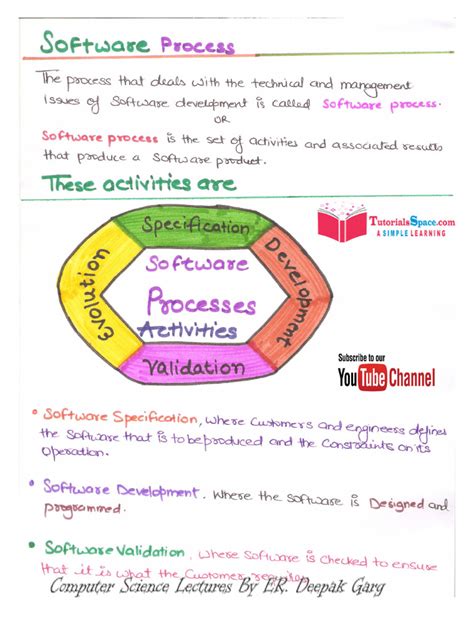 Software Process
The process that deals with the technical and management
issues of Software development is called Software process.
OR
Software process is the set of activities and associated results
that produce a software product.
These activities are
TutorialsSpace.com
A SIMPLE LEARNING
Specification
Evolution
Software
Processes
Activities
Development
Validation
Subscribe to our
YouTube Channel
• Software Specification, where Customers and engineers defines
the software that is to be produced and the Constraints on its
Operation.
• Software Development. Where the software is Designed and
programmed.
• Software Validation, where Software is checked to ensure
that it is what the Customer requires
Computer Science Lectures By ER. Deepak Garg